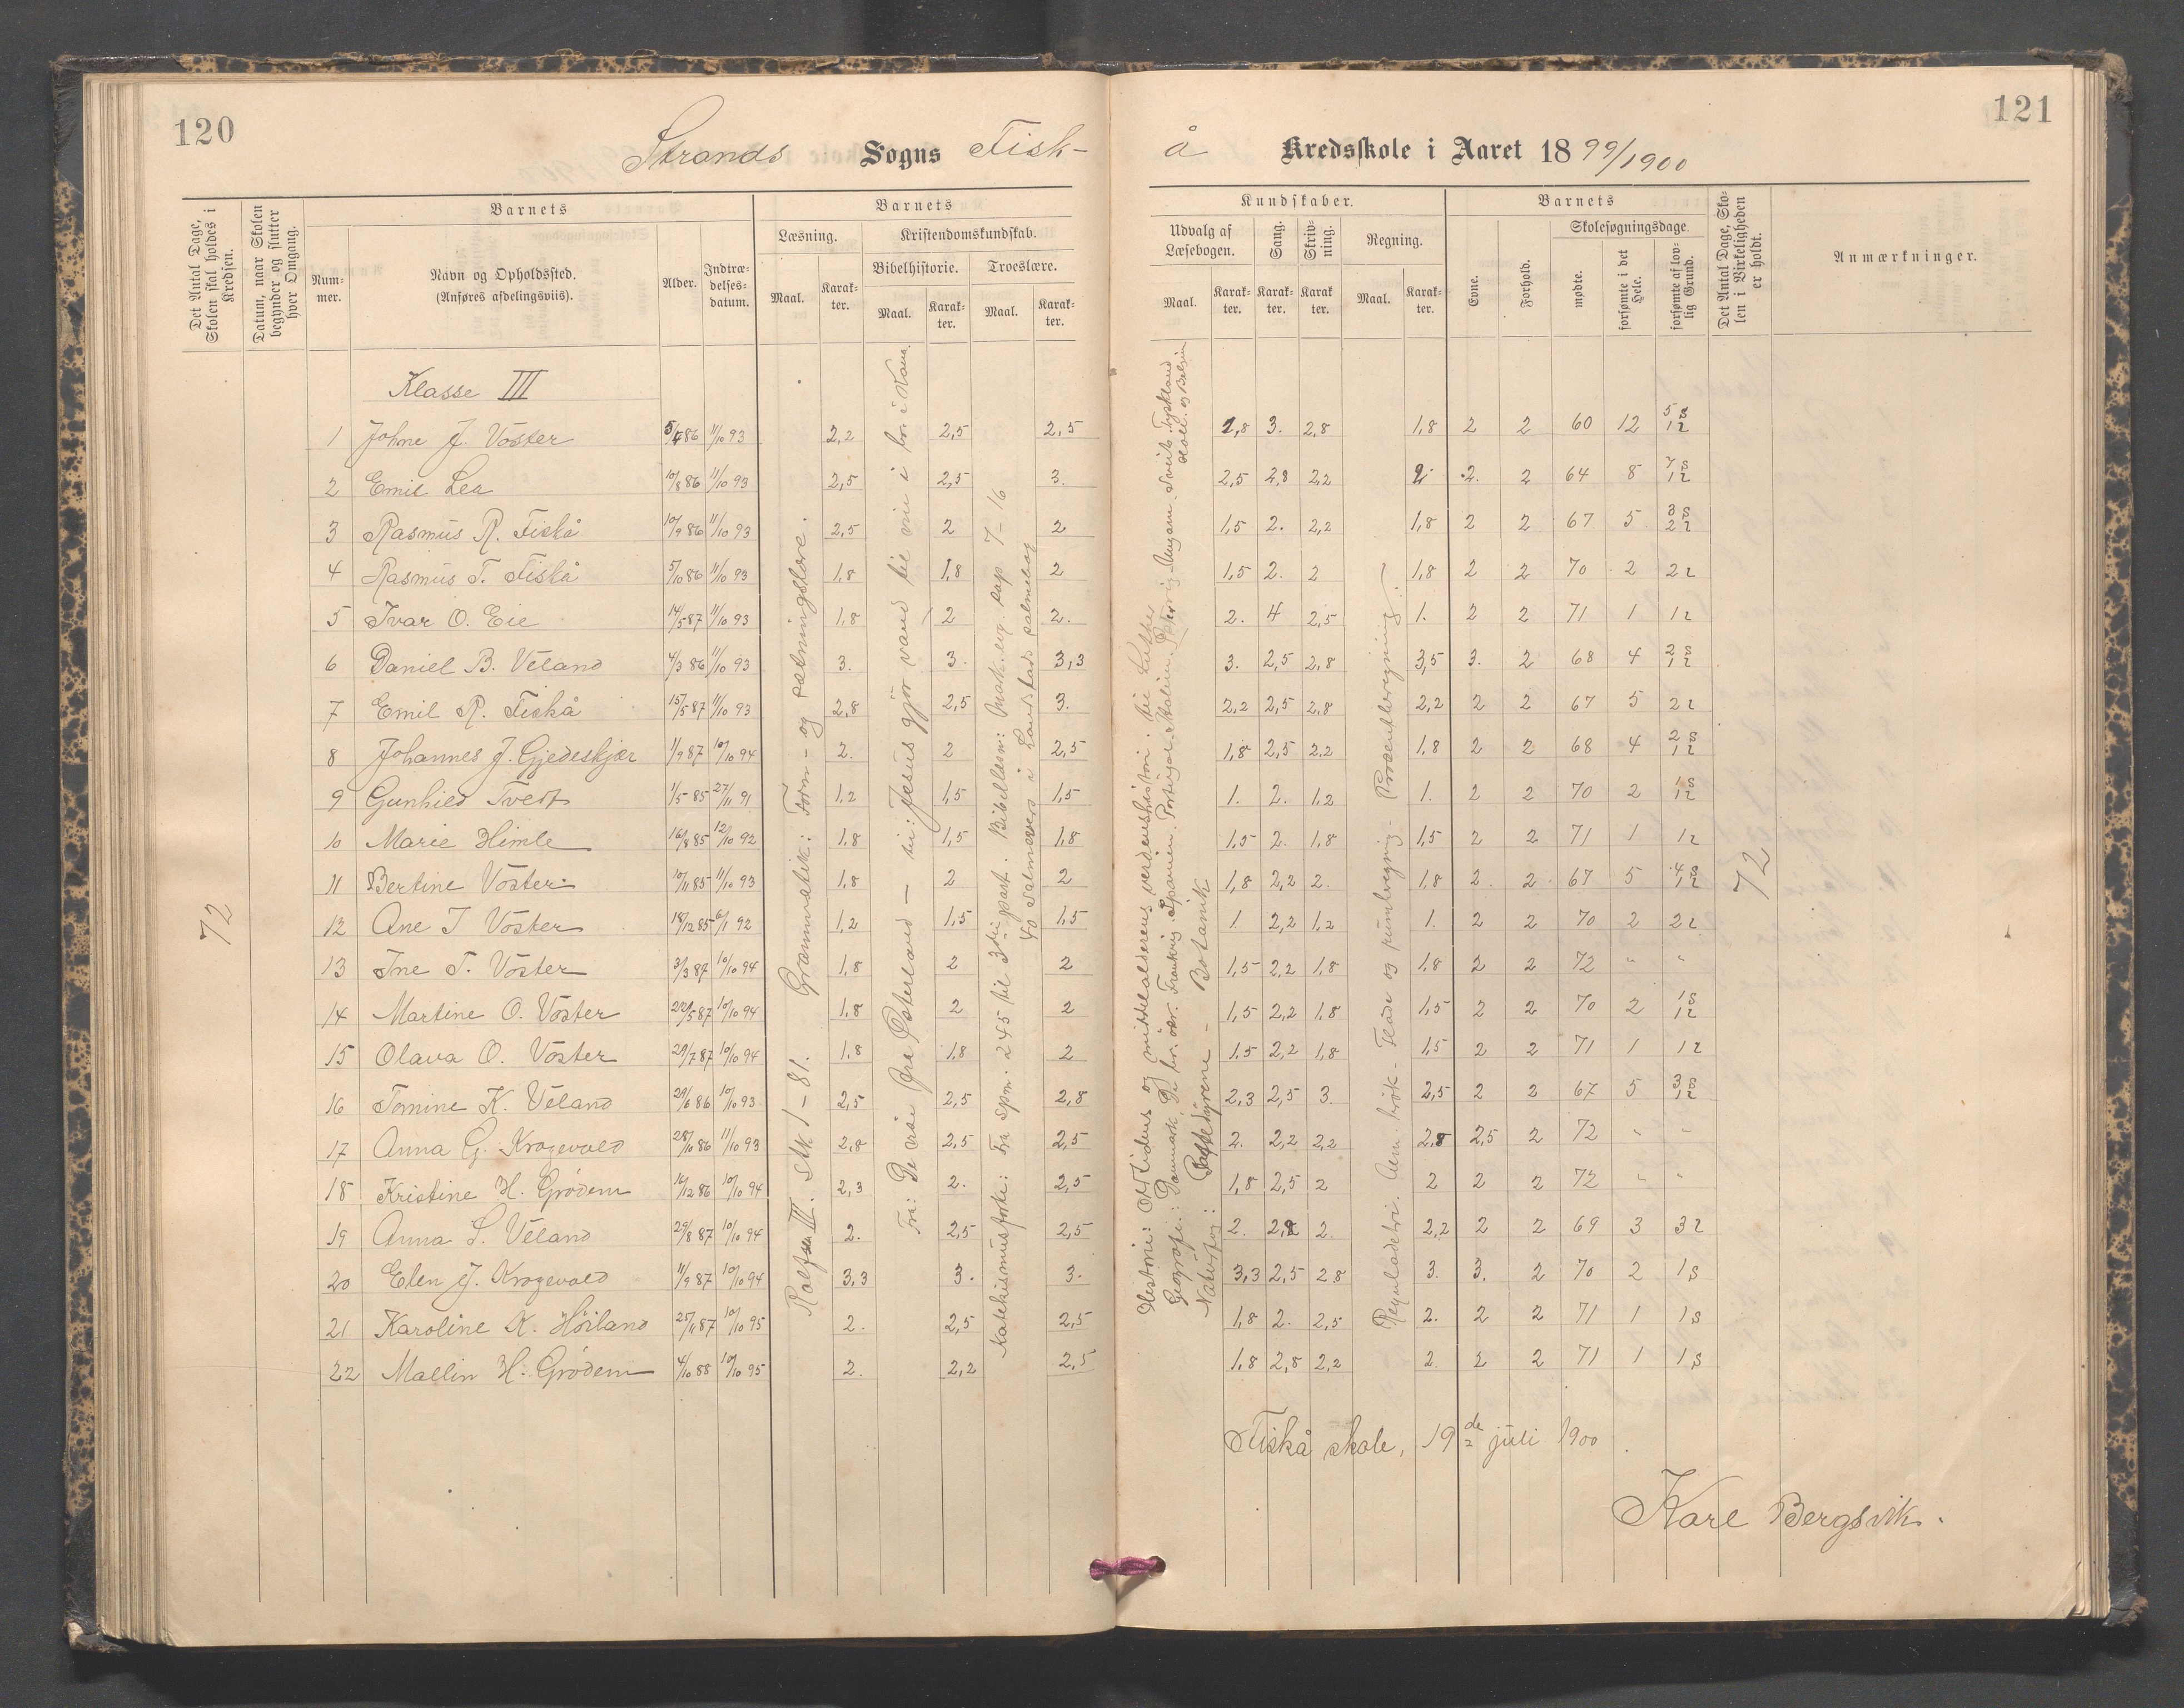 120
121
Strands Sogns Fisk-
å Kredsskole i Aaret 1899/1900
Det Antal Dage, Skolen skal holdes i Kredsen.
Datum, naar Skolen begynder og slutter hver Omgang.
Barnets
Nummer.
Navn og Opholdssted. (Anføres afdelingsviis).
Alder.
Indtrædelses-datum.
Barnets
Læsning.
Maal.
Karakter.
Kristendomskundskab.
Bibelhistorie.
Maal.
Karakter.
Troeslære.
Maal.
Karakter.
Kundskaber.
Udvalg af Læsebogen.
Maal.
Karakter.
Sang.
Karakter.
Skrivning.
Karakter.
Regning.
Maal.
Karakter.
Barnets
Evne.
Forhold.
Skolesøgningsdage.
mødte.
forsømte i det Hele.
forsømte af lovlig Grund.
Det Antal Dage, Skolen i Virkeligheden er holdt.
Anmærkninger.
Klasse III
1 Johne J. Voster 5/4 86 11/10 93 2,2 2,5 2,5 1,8 3. 2,8 1,8 2 2 60 12 5 s 1 l
2 Emil Lea 10/8 86 11/10 93 2,5 2,5 3. 2,5 2,8 2,2 2 2. 2 64 8 7 s 1 l
3 Rasmus R. Fiskå 10/9 86 11/10 93 2,5 2 2 1,5 2. 2,2 1,8 2 2 67 5 3 s 2 l
4 Rasmus T. Fiskå 5/10 86 11/10 93 1,8 1,8 2 1,5 2. 2 1,8 2 2 70 2 2 l
5 Ivar O. Eie 14/5 87 11/10 93 1,8 2 2. 2. 4 2,5 1. 2 2 71 1 1 l
6 Daniel B. Veland 4/3 86 11/10 93 3. 3. 3,3 3. 2,5 2,8 3,5 3. 2 68 4 2 s 1 l
7 Emil R. Fiskå 15/5 87 11/10 93 2,8 2,5 3. 2,2 2,5 2,8 2,2 2 2 67 5 2 l
8 Johannes J. Gjedeskjær 1/9 87 10/10 94 2. 2 2,5 1,8 2,5 2,2 1,8 2 2 68 4 2 s 1 l
9 Gunhild Tvedt 1/5 85 27/11 91 1,2 1,5 1,5 1. 2. 1,2 1. 2 2 70 2 1 s 1 l
10 Marie Himle 16/8 85 12/10 92 1,8 1,5 1,8 1,5 2. 1,8 1,5 2 2 71 1 1 l
11 Bertine Voster 10/11 85 11/10 93 1,8 2 2 1,8 2,2 2. 1,8 2 2 67 5 4 s 1 l
12 Ane T Voster 18/12 85 6/1 92 1,2 1,5 1,5 1 2,2 1,2 1. 2 2 70 2 2 l
13 Ine T. Voster 3/3 87 10/10 94 1,8 2 2 1,5 2,2 1,8 1,8 2 2 72 " "
14 Martine O. Voster 22/5 87 10/10 94 1,8 2 2 1,5 2,2 1,8 1,5 2 2 70 2 1 s 1 l
15 Olava O. Voster 29/7 87 10/10 94 1,8 1,8 2 1,5 2,2 1,8 1,5 2 2 71 1 1 l
16 Tomine K. Veland 29/6 86 10/10 93 2,5 2,5 2,8 2,3 2,5 3. 2,5 2 2 67 5 3 s 1 l
17 Anna G. Krogevold 28/10 86 11/10 93 2,8 2,5 2,5 2. 2,2 2,2 2,8 2,5 2 72 " "
18 Kristine H. Grödem 16/12 86 10/10 94 2,3 2. 2,5 1,8 2,5 2 2 2 2 72 " "
19 Anna S. Veland 29/8 87 10/10 94 2. 2,5 2,5 2. 2,2 2. 2,2 2 2 69 3 3 l
20 Elen J. Krogevold 11/9 87 10/10 94 3,3 3. 3. 3,3 2,5 2,8 3. 3. 2 70 2 1 s
21 Karoline K. Höiland 25/11 87 10/10 95 2. 2,5 2,5 1,8 2. 2,5 2. 2 2 71 1 1 s
22 Mallin H. Grödem 4/10 88 10/10 95 2. 2,2 2,5 1,8 2,8 2,2 2. 2 2 71 1 1 s
72
72
Rolfsen III. Stk. 1-81. Grammatik: Form- og sætningslære.
Fra: De vise fra Østerland — til: Jesus gjör vand til vin i br. i Kana.
Katekismusforkl.: Fra Spm. 245 til 3die part. Bibellæsn: Mark. evg. kap 7-16
40 salmevers i Landstads salmebog
Historie: Oldtidens og middelalderens verdenshistori. til Luther
Geografi: Danmark. De br. öer. Frankrig. Spanien. Portugal. Italien. Østerrig-Ungarn. Sveits. Tyskland Holl. og Belgien
Naturfag: Pattedyrene - Botanik
Reguladetri. Alm. brök - Flade og rumberegning - Procentberegning.
Fiskå skole, 19de juli 1900.
Karl Bergsvik.